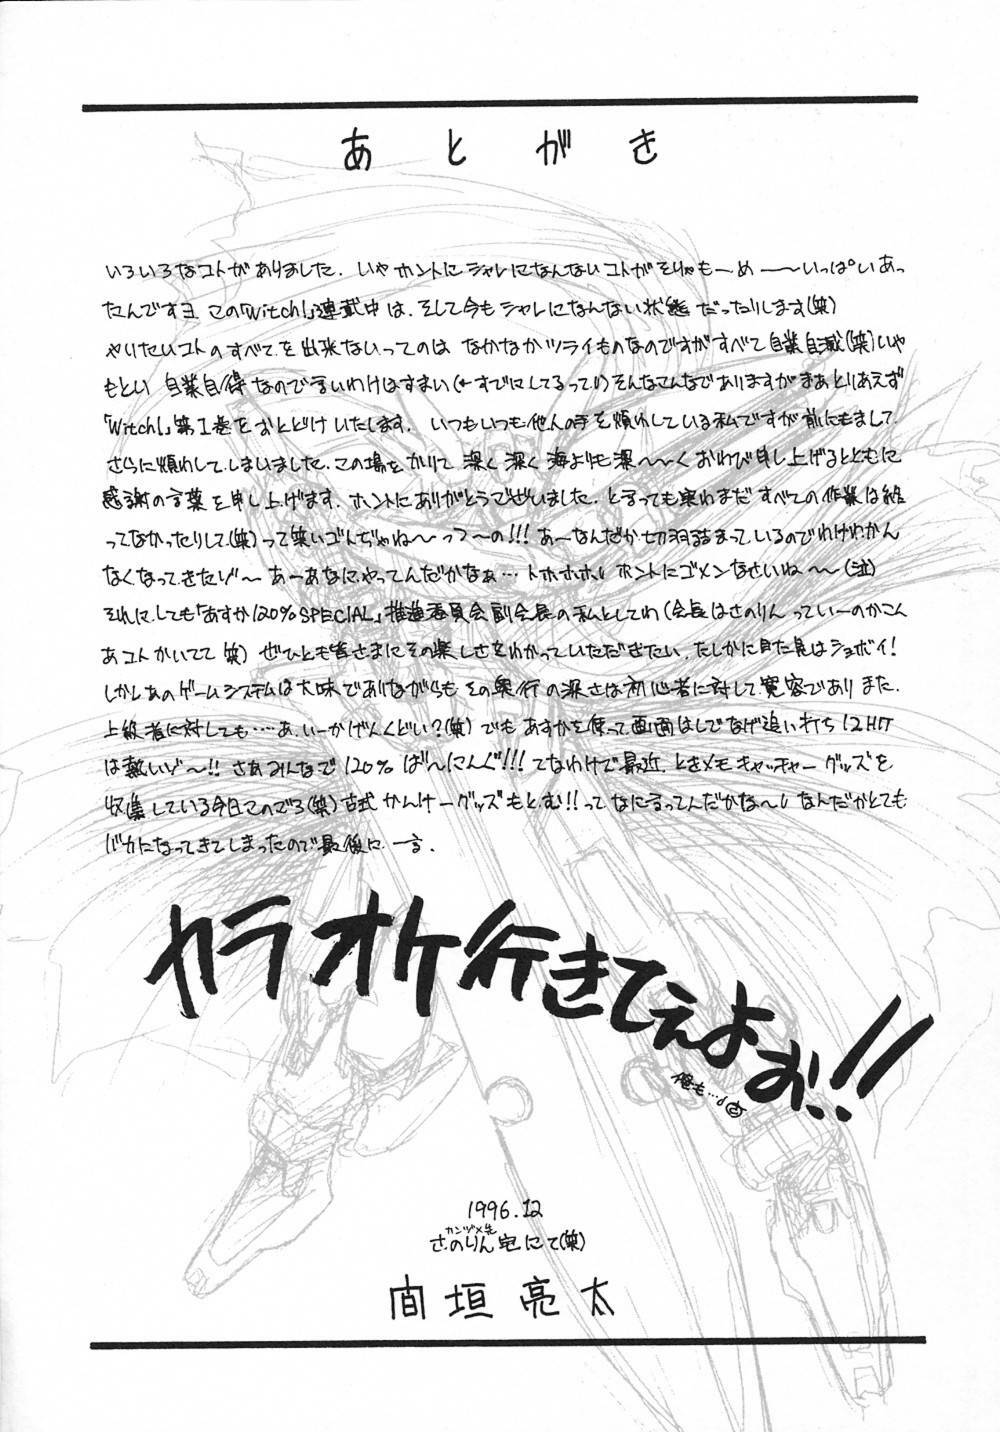 あとがき
いろいろなコトがありました. いやホントにシャレになんないコトがそりゃもーめー〜〜いっぱいあっ
たんですヨ この「Witch!」連載中は、そして今もシャレになんない状態だったりします(笑)
やりたいコトのすべてを出来ないってのはなかなかツライものなのですがすべて自業自滅(笑)いや
もとい 自業自得なので言いわけはすまい(←すでにしてるって!)そんなこんなでありますがまあとりあえず
「Witch!」第1巻をおとどけいたします. いつもいつも他人の手を煩わしている私ですが前にもまして
さらに煩わしてしまいました. この場をかりて深く深く海よりも深〜〜くおわび申し上げるとともに
感謝の言葉を申し上げます. ホントにありがとうございました. と言っても実わまだすべての作業は終
ってなかったりして(笑)って笑いゴトぢゃね〜っつ〜の!!! あーなんだか切羽詰まっているのでわけわかん
なくなってきたゾ〜 あーあなにやってんだかなぁ…トホホホホ ホントにゴメンなさいね〜〜(泣)
それにしても「あすか120%SPECIAL」推進委員会副会長の私としてわ(会長はさのりんっていーのかこん
あコトかいてて 笑) ぜひとも皆さまにその楽しさをわかっていただきたい. たしかに見た目はショボイ!
しかしあのゲームシステムは大味でありながらもその奥行の深さは初心者に対して寛容でありまた.
上級者に対しても……あ、いーかげんくどい?(笑) でもあすかを使って画面はしでなげ追い打ち12HIT
は熱いゾ〜!! さあみんなで120%ば〜にんぐ!!! てなわけで最近、ときメモキャッチャーグッズを
収集している今日このごろ(笑)古式かんけーグッズもとむ!!ってなにゆってんだかな〜 なんだかとても
バカになってきてしまったので最後に一言.
カラオケ行きてぇよぉ!!
俺も…
1996.12
カンヅメ先
さのりん宅にて(笑)
間垣亮太